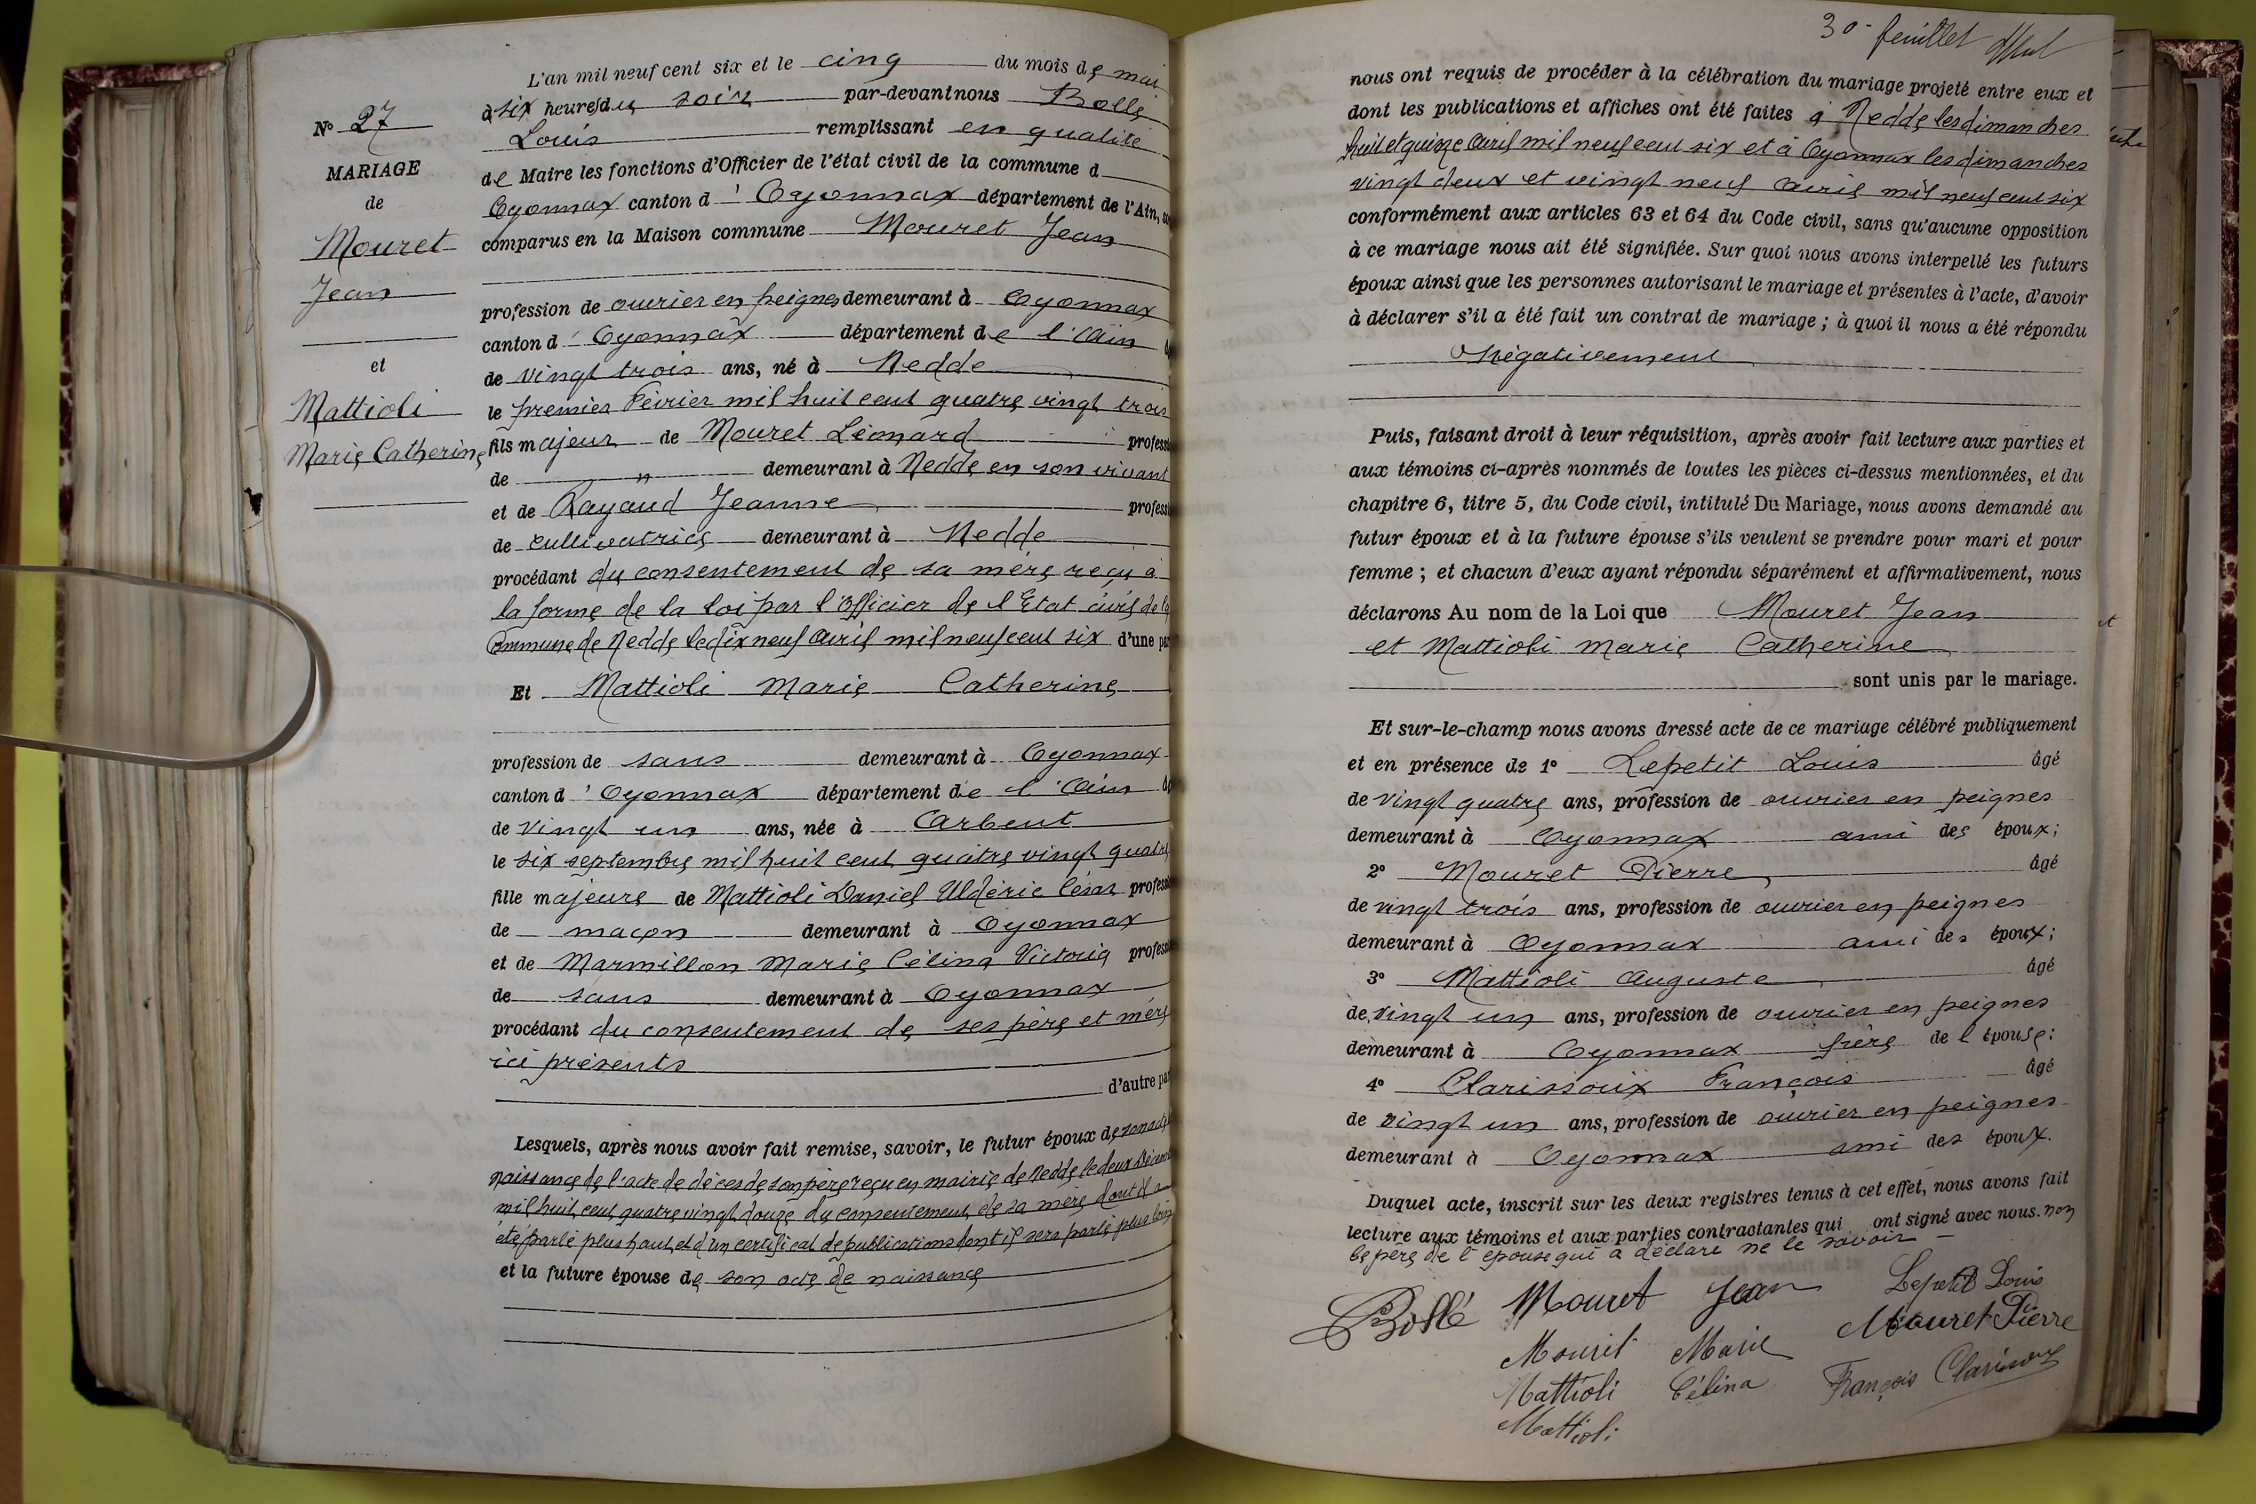 N° 27
MARIAGE
de
Mouret
Jean
et
Mattioli
Marie Catherine
L'an mil neuf cent six et le cinq du mois de mai
à six heures du soir par-devant nous Bollé
Louis remplissant en qualité
de Maire les fonctions d'Officier de l'état civil de la commune d
Oyonnax canton d'Oyonnax département de l'Ain,
comparus en la Maison commune Mouret Jean
profession de ouvrier en peignes demeurant à Oyonnax
canton d'Oyonnax département de l'Ain
de vingt trois ans, né à Nedde
le premier Février mil huit cent quatre vingt trois
fils majeur de Mouret Léonard profess
de " demeurant à Nedde en son vivant
et de Rayaud Jeanne profess
de cultivatrice demeurant à Nedde
procédant du consentement de sa mère reçu à
la forme de la loi par l'Officier de l'Etat civil de la
Commune de Nedde le dix neuf avril mil neuf cent six d'une pa
Et Mattioli Marie Catherine
profession de sans demeurant à Oyonnax
canton d'Oyonnax département de l'Ain
de vingt un ans, née à Arbent
le six septembre mil huit cent quatre vingt quatre
fille majeure de Mattioli Daniel Uldéric César profess
de maçon demeurant à Oyonnax
et de Marmillon Marie Célina Victoria profess
de sans demeurant à Oyonnax
procédant du consentement de ses père et mère
ici présents
d'autre pa
Lesquels, après nous avoir fait remise, savoir, le futur époux de son acte
naissance de l'acte de décès de son père reçu en mairie de Nedde le deux Décem
mil huit cent quatre vingt douze du consentement de sa mère dont il a
été parlé plus haut et d'un certificat de publications dont il sera parlé plus loin
et la future épouse de son acte de naissance
30e feuillet
nous ont requis de procéder à la célébration du mariage projeté entre eux et
dont les publications et affiches ont été faites à Nedde les dimanches
huit et quinze avril mil neuf cent six et à Oyonnax les dimanches
vingt deux et vingt neuf avril mil neuf cent six
conformément aux articles 63 et 64 du Code civil, sans qu'aucune opposition
à ce mariage nous ait été signifiée. Sur quoi nous avons interpellé les futurs
époux ainsi que les personnes autorisant le mariage et présentes à l'acte, d'avoir
à déclarer s'il a été fait un contrat de mariage ; à quoi il nous a été répondu
Négativement
Puis, faisant droit à leur réquisition, après avoir fait lecture aux parties et
aux témoins ci-après nommés de toutes les pièces ci-dessus mentionnées, et du
chapitre 6, titre 5, du Code civil, intitulé Du Mariage, nous avons demandé au
futur époux et à la future épouse s'ils veulent se prendre pour mari et pour
femme ; et chacun d'eux ayant répondu séparément et affirmativement, nous
déclarons Au nom de la Loi que Mouret Jean
et Mattioli Marie Catherine
sont unis par le mariage.
Et sur-le-champ nous avons dressé acte de ce mariage célébré publiquement
et en présence de 1° Lepetit Louis âgé
de vingt quatre ans, profession de ouvrier en peignes
demeurant à Oyonnax ami des époux ;
2° Mouret Pierre âgé
de vingt trois ans, profession de ouvrier en peignes
demeurant à Oyonnax ami des époux ;
3° Mattioli Auguste âgé
de vingt un ans, profession de ouvrier en peignes
demeurant à Oyonnax frère de l'épouse ;
4° Clarissoux François âgé
de vingt un ans, profession de ouvrier en peignes
demeurant à Oyonnax ami des époux.
Duquel acte, inscrit sur les deux registres tenus à cet effet, nous avons fait
lecture aux témoins et aux parties contractantes qui ont signé avec nous. non
le père de l'épouse qui a déclaré ne le savoir
Bollé Mouret Jean Lepetit Louis
Mouret Marie Mouret Pierre
Mattioli Célina François Clarissoux
Mattioli